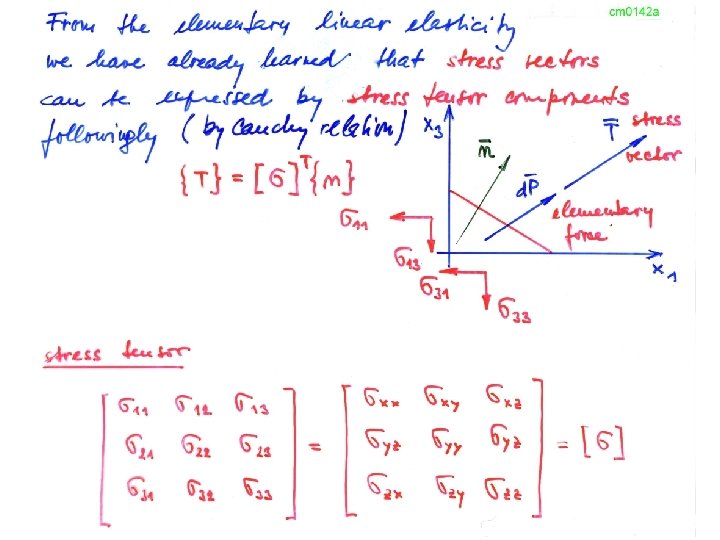 cm0142a
From the elementary linear elasticity
we have already learned that stress vectors
can be expressed by stress tensor components
followingly (by Cauchy relation)
{T} = [σ]ᵀ{n}
x₃
n̄
T̄ stress
vector
dP̄
elementary
force
σ₁₁
σ₁₃
σ₃₁
σ₃₃
x₁
stress tensor
[σ₁₁ σ₁₂ σ₁₃] = [σxx σxy σxz] = [σ]
[σ₂₁ σ₂₂ σ₂₃] [σyz σyy σyz]
[σ₃₁ σ₃₂ σ₃₃] [σzx σzy σzz]